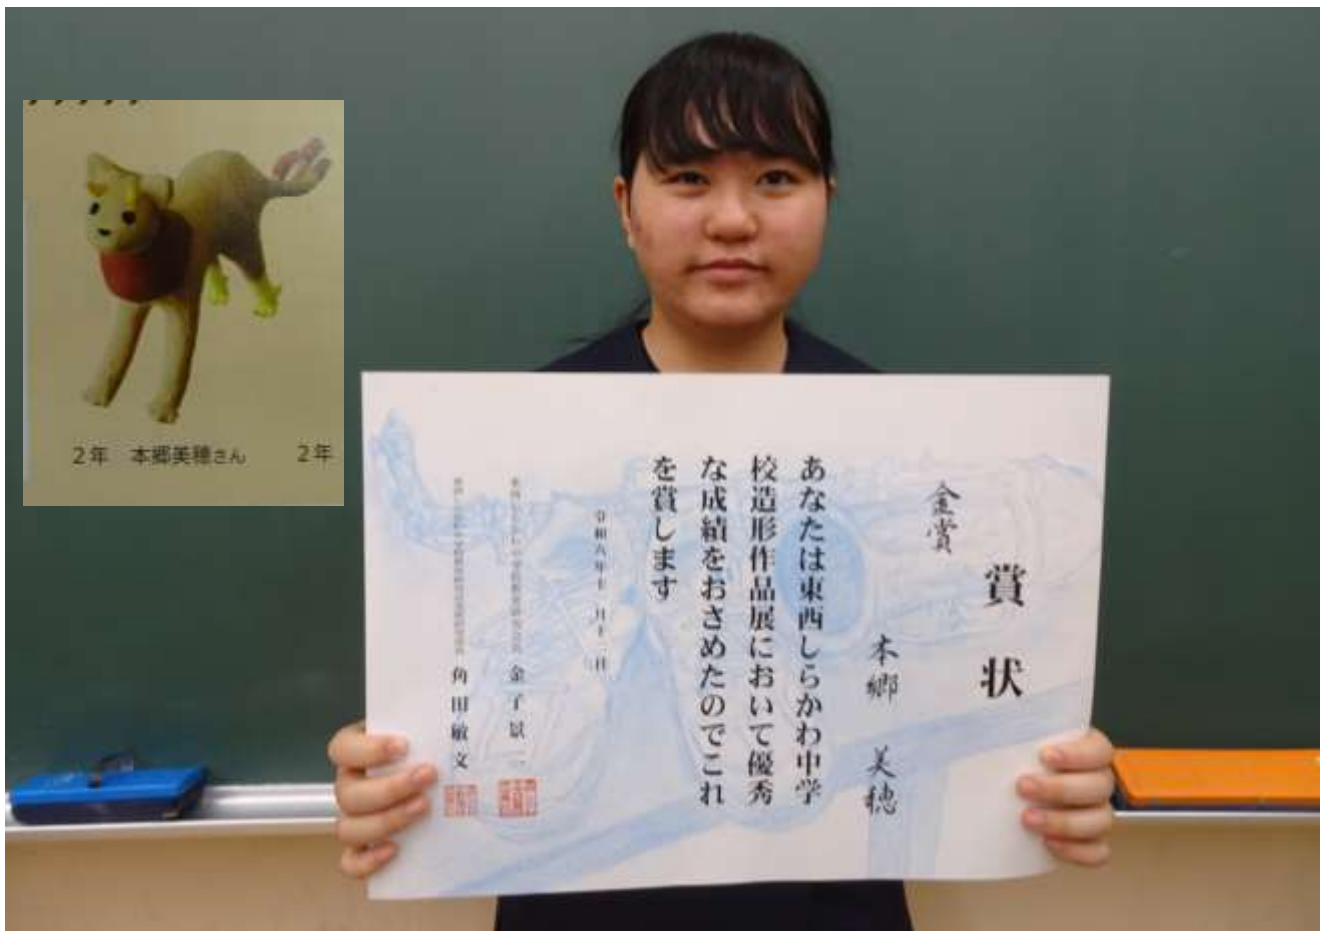 2年 本郷美穂さん
2年
賞状
金賞
本郷 美穂
あなたは東西しらかわ中学
校造形作品展において優秀
な成績をおさめたのでこれ
を賞します
金子景二
角田敏文